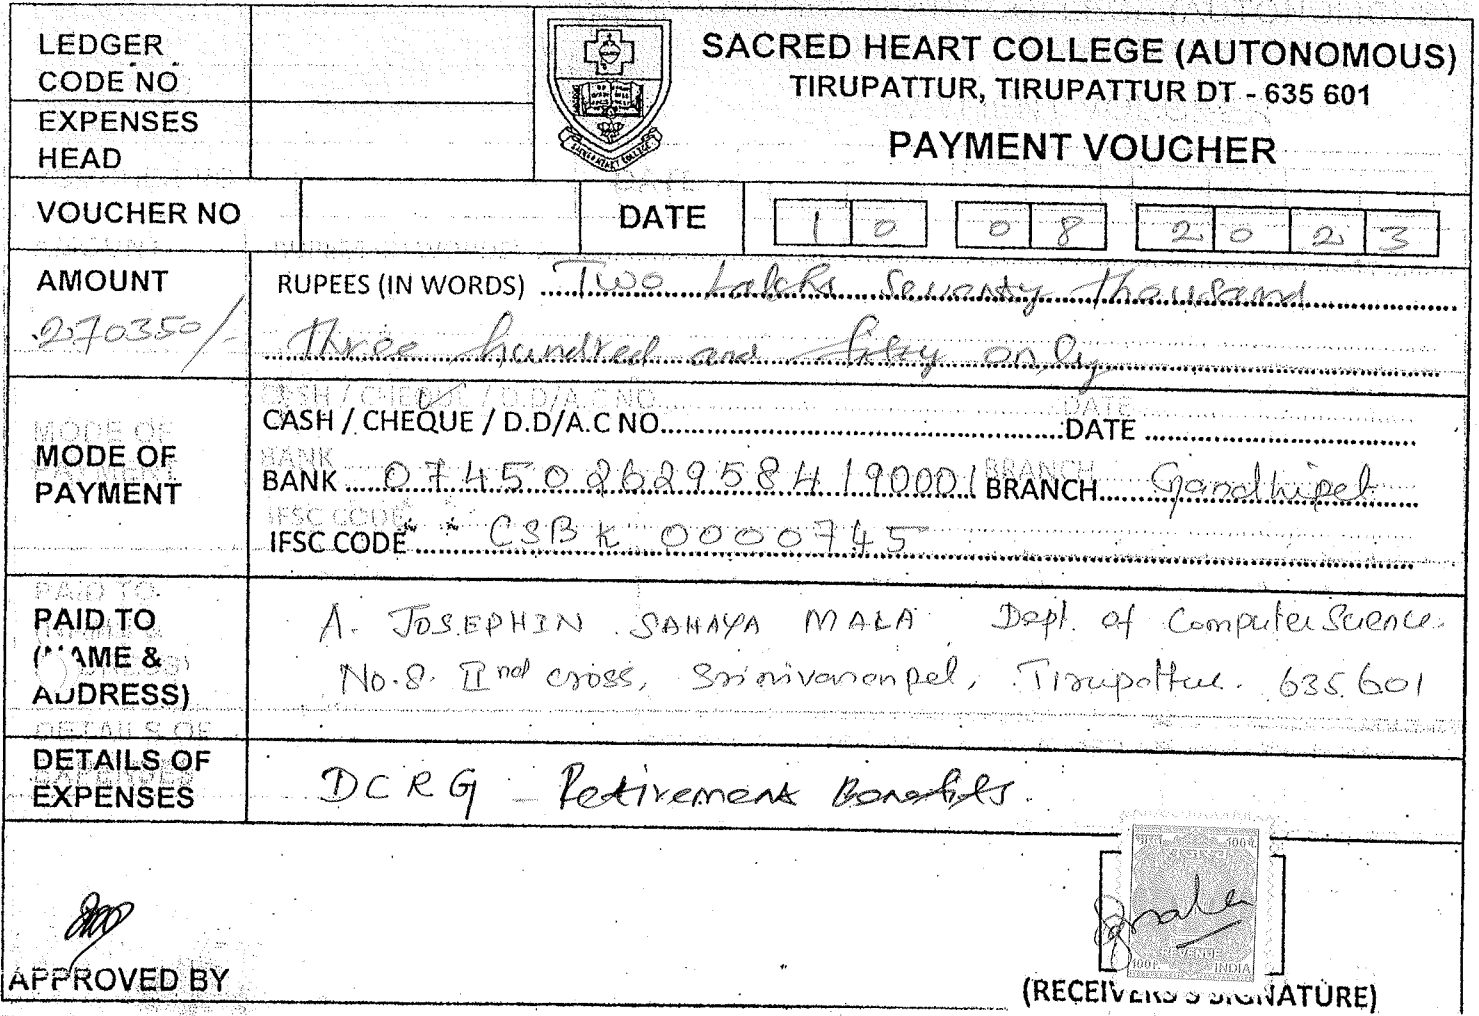 LEDGER
CODE NO
EXPENSES
HEAD
SACRED HEART COLLEGE
SACRED HEART COLLEGE (AUTONOMOUS)
TIRUPATTUR, TIRUPATTUR DT - 635 601
PAYMENT VOUCHER
VOUCHER NO
DATE 10 08 2023
AMOUNT
270350/-
RUPEES (IN WORDS) Two Lakhs Seventy thousand
three hundred and fifty only
MODE OF
PAYMENT
CASH / CHEQUE / D.D/A.C NO. DATE
BANK 074502629584190001 BRANCH Gandhipet
IFSC CODE CSBK 0000745
PAID TO
(NAME &
ADDRESS)
A. JOSEPHIN SAHAYA MALA Dept. of Computer Science.
No.8. IInd cross, Srinivasanpet, Tirupattur. 635601
DETAILS OF
EXPENSES
DCRG - Retirement Benefits.
REVENUE
INDIA
APPROVED BY
(RECEIVERS'S SIGNATURE)